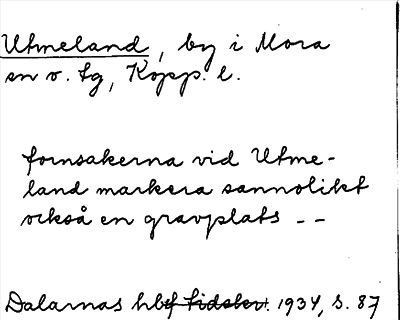 Utmeland, by i Mora
sn o. tg, Kopp. l.
fornsakerna vid Utme-
land markera sannolikt
också en gravplats - -
Dalarnas hbf tidskr. 1934, s. 87